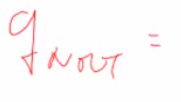 q_{NOUT} =